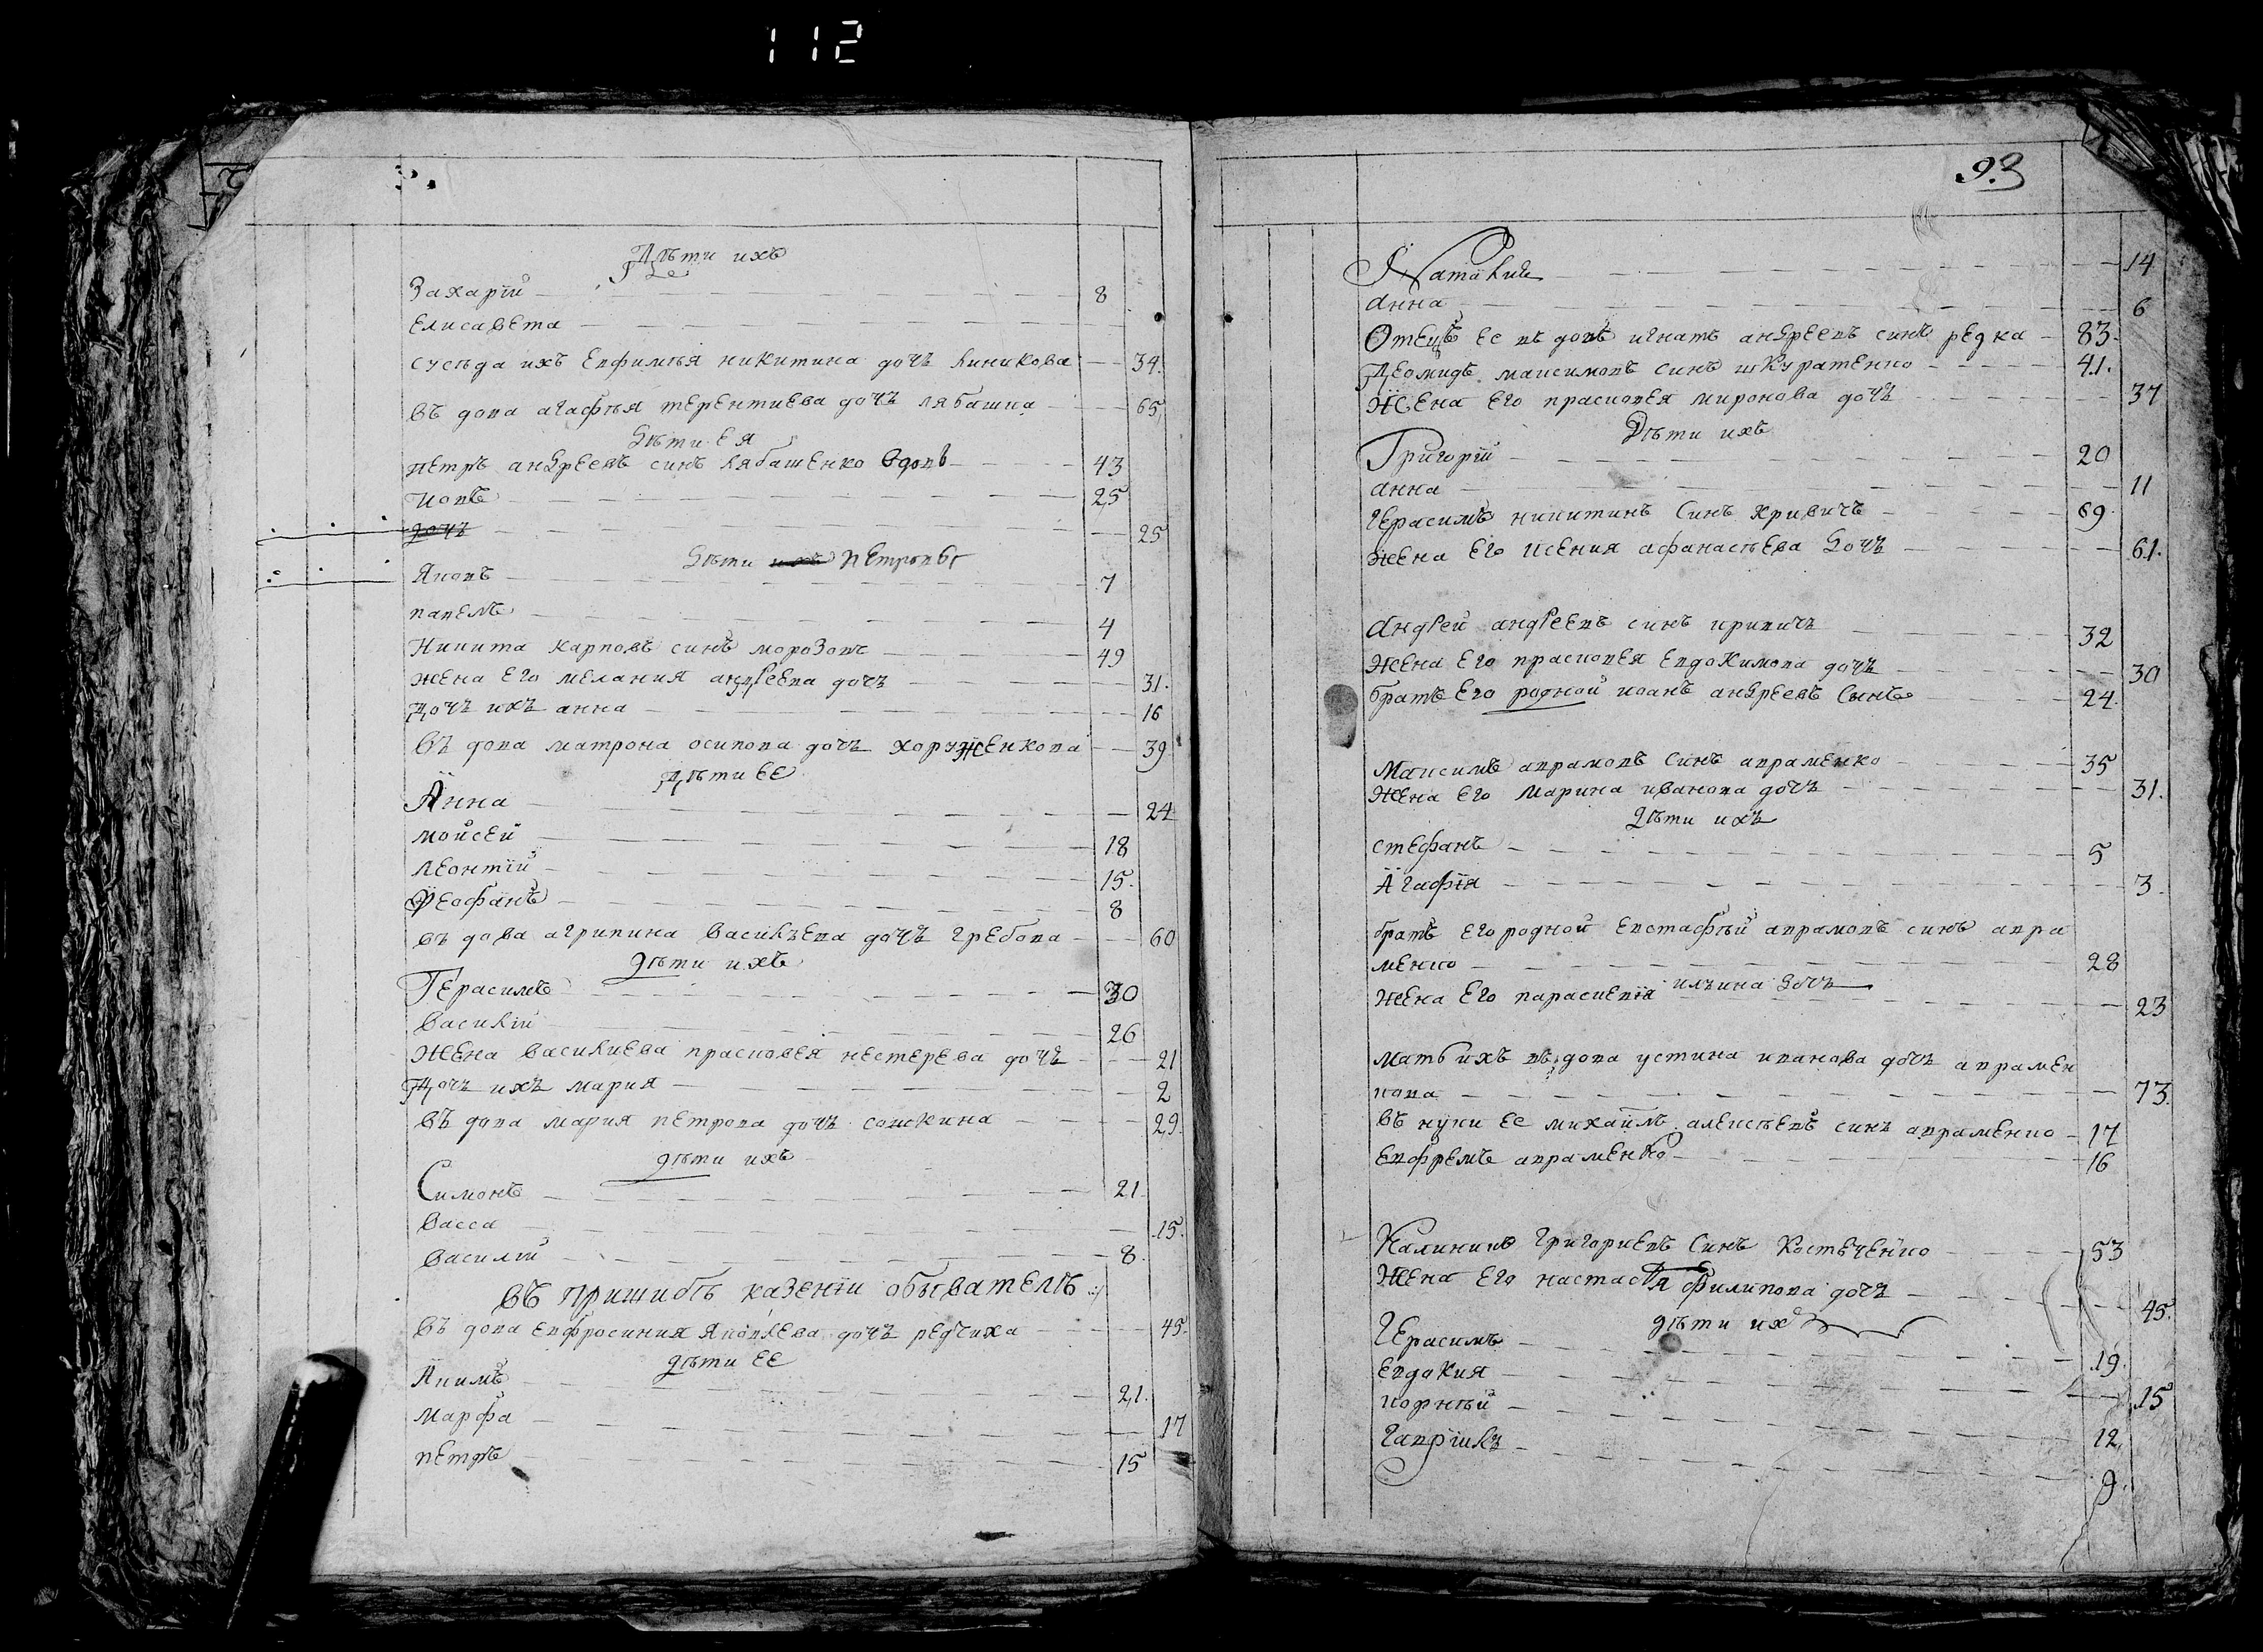 112
Дѣти ихъ
Захарїй 8
Елисавета
сусѣда ихъ Евфимѣя никитина дочъ 34
въ дова агафѣя терентиева дочъ лябашка 65
дѣти ея
петръ андреевъ синъ лябашенко вдовъ 43
иовъ 25
дочъ 25
дѣти ихъ Петровы
Яковъ 7
павелъ 4
Никита карповъ синъ морозовъ 49
жена его мелания андреева дочъ 31.
Дочъ ихъ анна 16
въ дова матрона осипова дочъ хоружженкова 39
Дѣти ее
Анна 24
мойсей 18
леонтїй 15.
Феофанъ 8
въ дова агрипина василъева дочъ гребова 60
дѣти ихъ
Герасимъ 30
василїй 26
жена василиева прасковея нестерева дочъ 21
Дочъ ихъ мария 2
въ дова мария петрова дочъ 29.
дѣти ихъ
Симонъ 21.
васса 15.
василїй 8.
въ пришибѣ казенїи обывателѣ
въ дова евфросиния яковлева дочъ редчиха 45.
дѣти ее
Акимъ 21.
марфа 17
петръ 15
93
Наталия 14
анна 6
Отецъ ее въ довъ игнатъ андреевъ синъ редка 83.
Деомидъ максимовъ синъ шкуратенко 41.
Жена его прасковея миронова дочъ 37
Дѣти ихъ
Григорїй 20
анна 11
Герасимъ никитинъ синъ кривичъ 69
жена его ксения афанасѣева дочъ 61.
Андрей андреевъ синъ кривичъ 32
жена его прасковея евдокимова дочъ 30
братъ его родной иоанъ андреевъ сынъ 24.
Максимъ аврамовъ синъ авраменко 35
жена его марина иванова дочъ 31.
дѣти ихъ
стефанъ 5
Агафїя 3.
братъ его родной евстафѣй аврамовъ синъ авра
менко 28
жена его парасцевїя илъина дочъ 23
мать ихъ въ дова устина иванова дочъ аврамен
кова 73.
въ нуки ее михаилъ алексѣевъ синъ авраменко 17
Евфремъ авраменко 16
Калиникъ григориевъ синъ 53
жена его настасѣя филипова дочъ 45.
дѣти их
Герасимъ 19.
евдокия 15
корнѣй 12.
гаврїилъ 9.